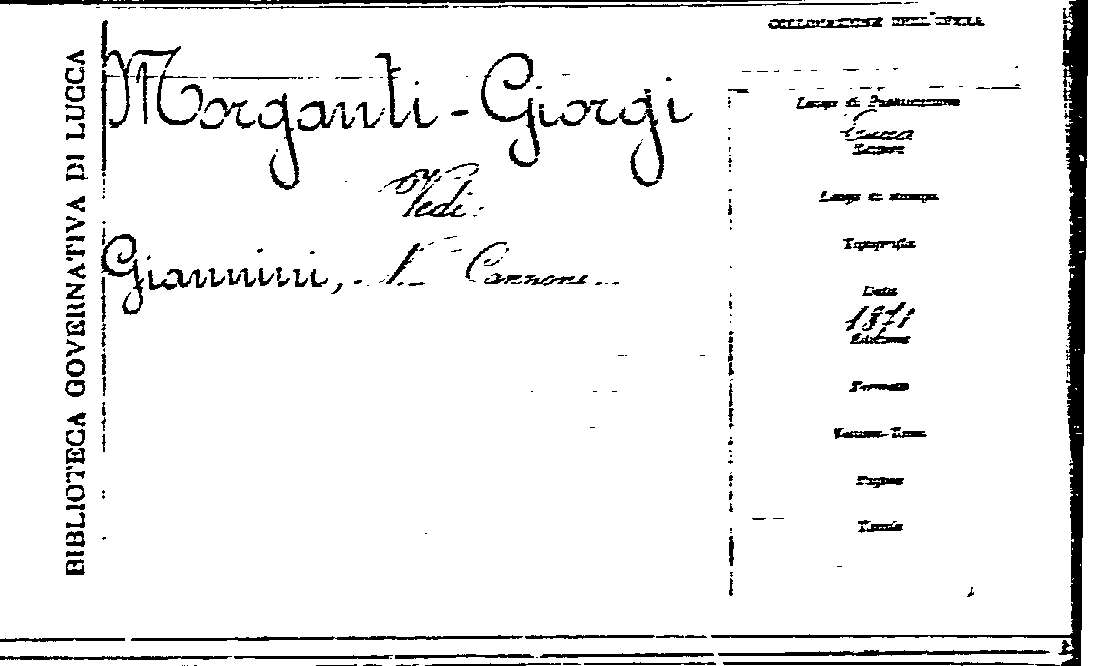 BIBLIOTECA GOVERNATIVA DI LUCCA
COLLOCAZIONE DELL'OPERA
Morganti - Giorgi
Vedi:
Giannini, - Canzone
Luogo di Pubblicazione
Lucca
Editore
Luogo di stampa
Tipografia
Data
1871
Edizione
Formato
Volume-Tomo
Pagine
Tavole